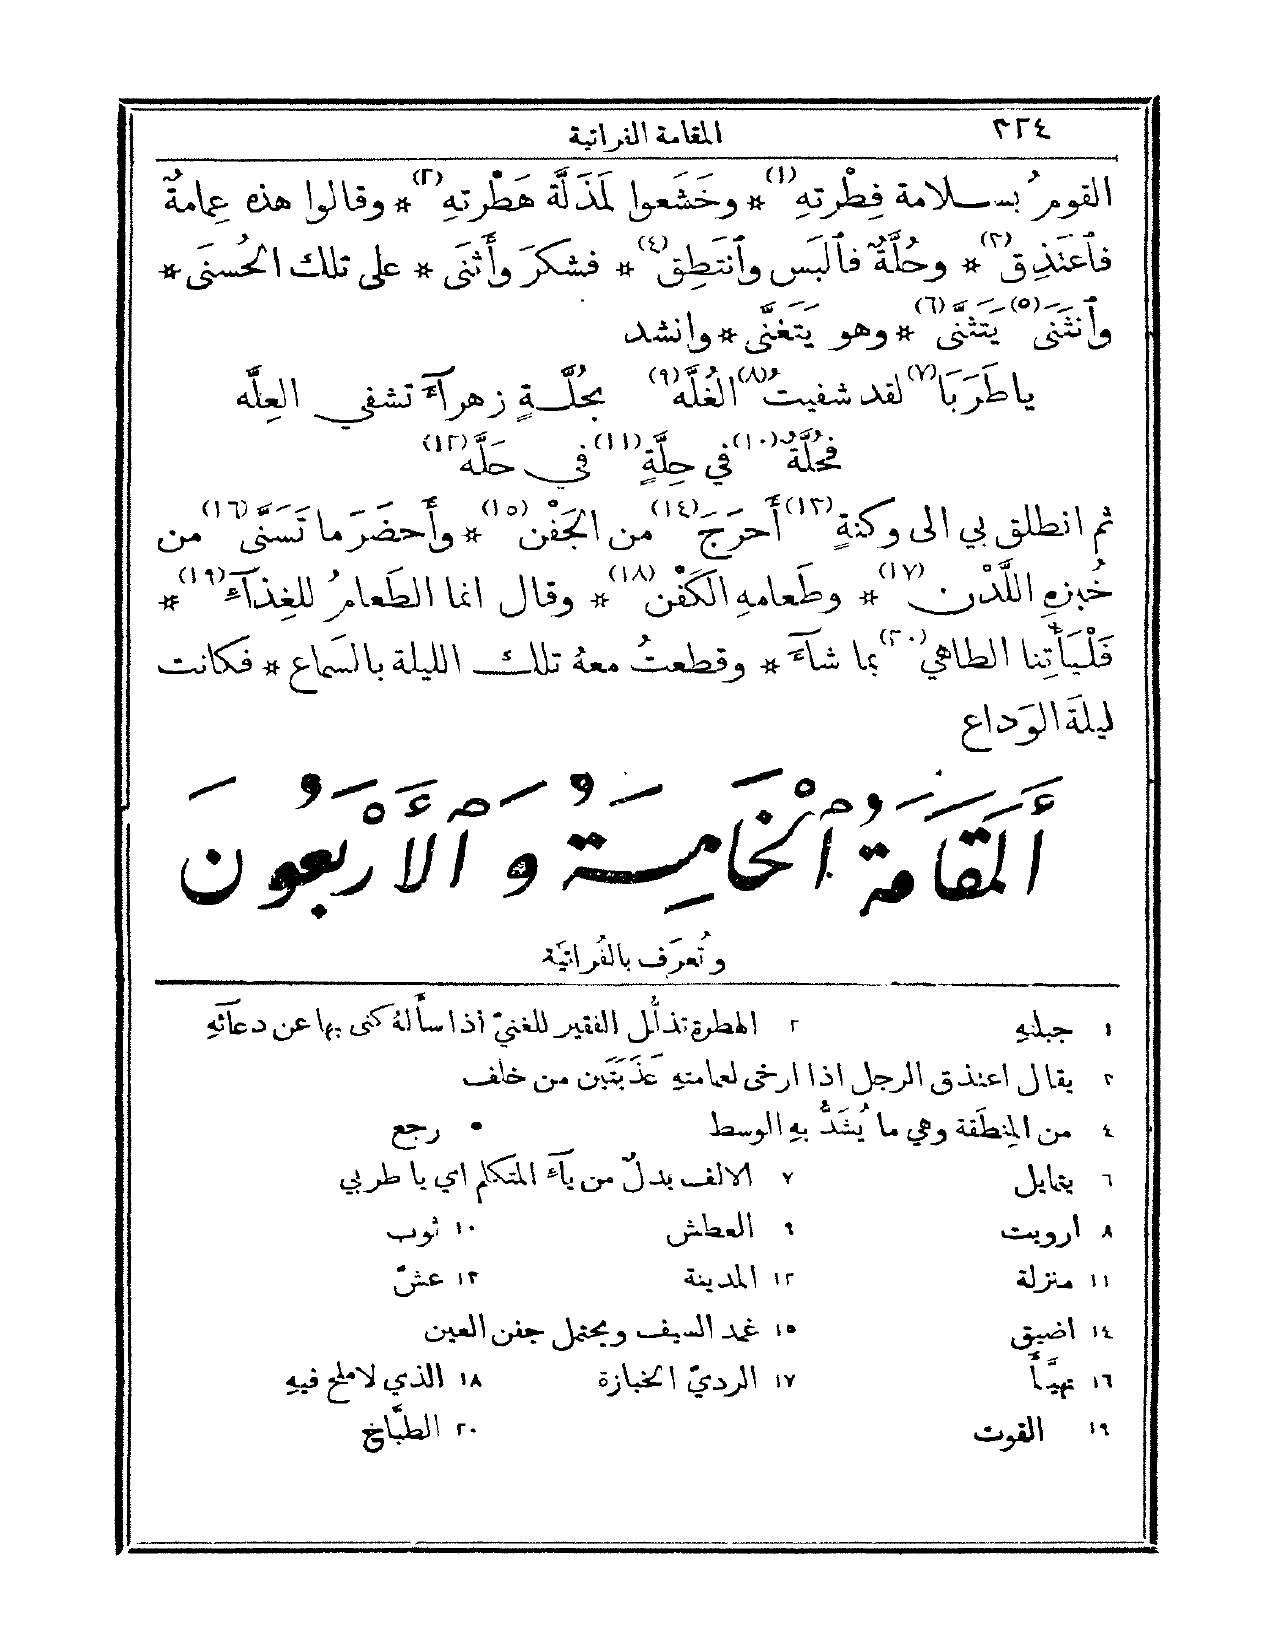 ٣٢٤ المقامة الفراتية
القومُ بسلامة فِطْرتهِ(١) * وخَشَعوا لمَذَلَّة هَطْرتهِ(٢) * وقالوا هذه عِمامةٌ
فٱعتَذِق(٣) * وحُلَّةٌ فٱلبَس وٱنتَطِق(٤) * فشكرَ وأَثنَى * على تلك الحُسنَى *
وٱنثَنَى(٥) يَتثنَّى(٦) * وهو يَتغنَّى * وانشد
يا طَرَبَا(٧) لقد شفيتُ(٨) الغُلَّه(٩) بحُلَّةٍ زهرآءَ تشفي العِلَّه
فحُلَّةٌ(١٠) في حِلَّةٍ(١١) في حَلَّه(١٢)
ثم انطلق بي الى وكنةٍ(١٣) أَحرَجَ(١٤) من الجَفْن(١٥) * وأَحضَرَ ما تَسَنَّى(١٦) من
خُبزهِ اللَّذْن(١٧) * وطَعامهِ الكَفْن(١٨) * وقال انما الطَعامُ للغِذآء(١٩) *
فَلْيَأْتِنا الطاهي(٢٠) بما شآءَ * وقطعتُ معهُ تلك الليلة بالسَماع * فكانت
ليلةَ الوَداع
أَلمَقَامَةُ ٱلْخَامِسَةُ وَٱلأَرْبَعُونَ
وتُعرَف بالفُراتيَّة
١ جبلتهِ ٢ الهطرة تذلُّل الفقير للغنيّ اذا سأَلهُ كنى بها عن دعآئهِ
٣ يقال اعتذق الرجل اذا ارخى لعمامتهِ عَذَبَتَين من خلف
٤ من المِنطَقة وهي ما يُشَدُّ بهِ الوسط ٥ رجع
٦ يتمايل ٧ الالف بدلٌ من يآء المتكلم اي يا طربي
٨ ارويت ٩ العطش ١٠ ثوب
١١ منزلة ١٢ المدينة ١٣ عشّ
١٤ اضيق ١٥ غمد السيف ويحتمل جفن العين
١٦ تهيَّأَ ١٧ الرديّ الخبازة ١٨ الذي لا ملح فيهِ
١٩ القوت ٢٠ الطبَّاخ